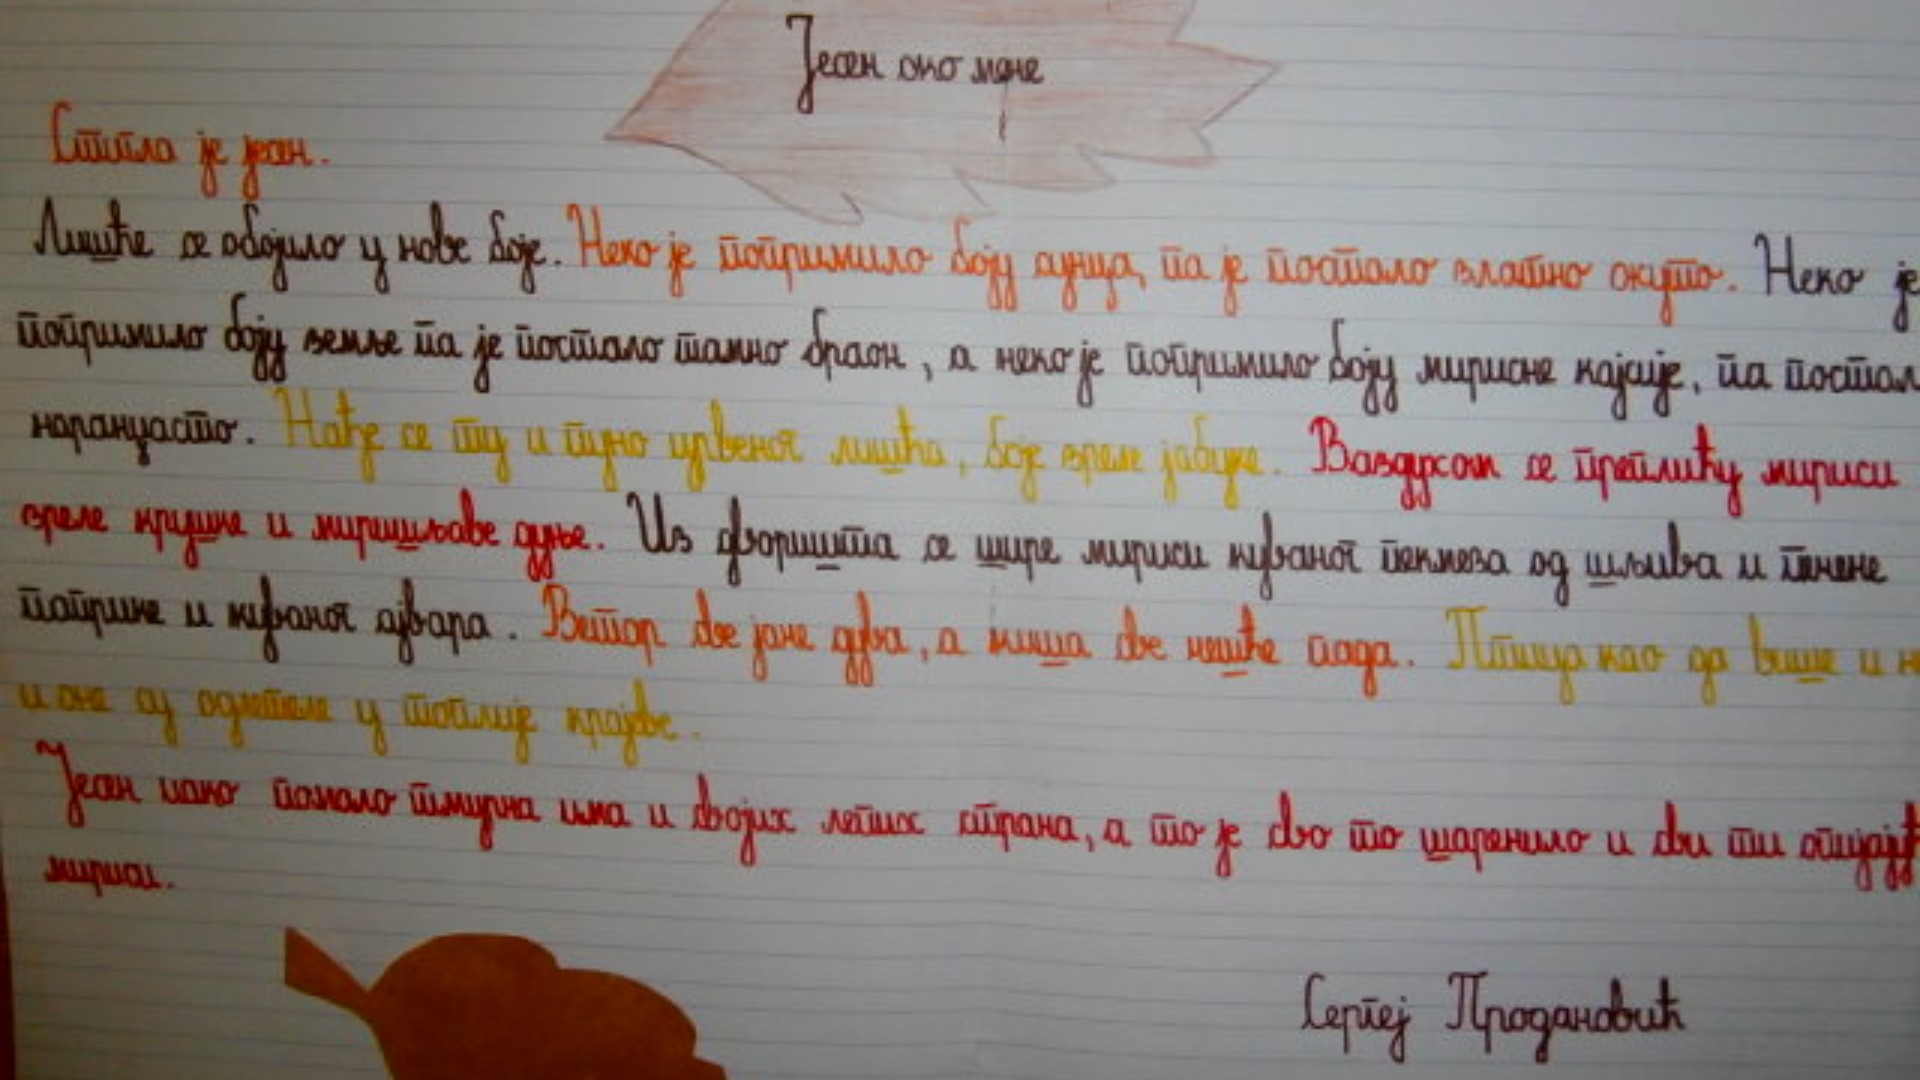 Јесен око мене
Стигла је јесен.
Лишће се обојило у нове боје. Неко је попримило боју сунца, па је постало златно окуто. Неко је
попримило боју земље па је постало тамно браон, а неко је попримило боју мирисне кајсије, па постал
наранџасто. Нађе се ту и пуно црвеног лишћа, боје зреле јабуке. Ваздухом се преплићу мириси
зреле крушке и миришљаве дуње. Из дворишта се шире мириси куваног пекмеза од шљива и печене
паприке и куваног ајвара. Ветар све јаче дува, а киша све чешће пада. Птица као да више и н
и оне су одлетеле у топлије крајеве.
Јесен иако помало тмурна има и својих лепих страна, а то је сво то шаренило и сви ти опијајућ
мириси.
Сергеј Продановић